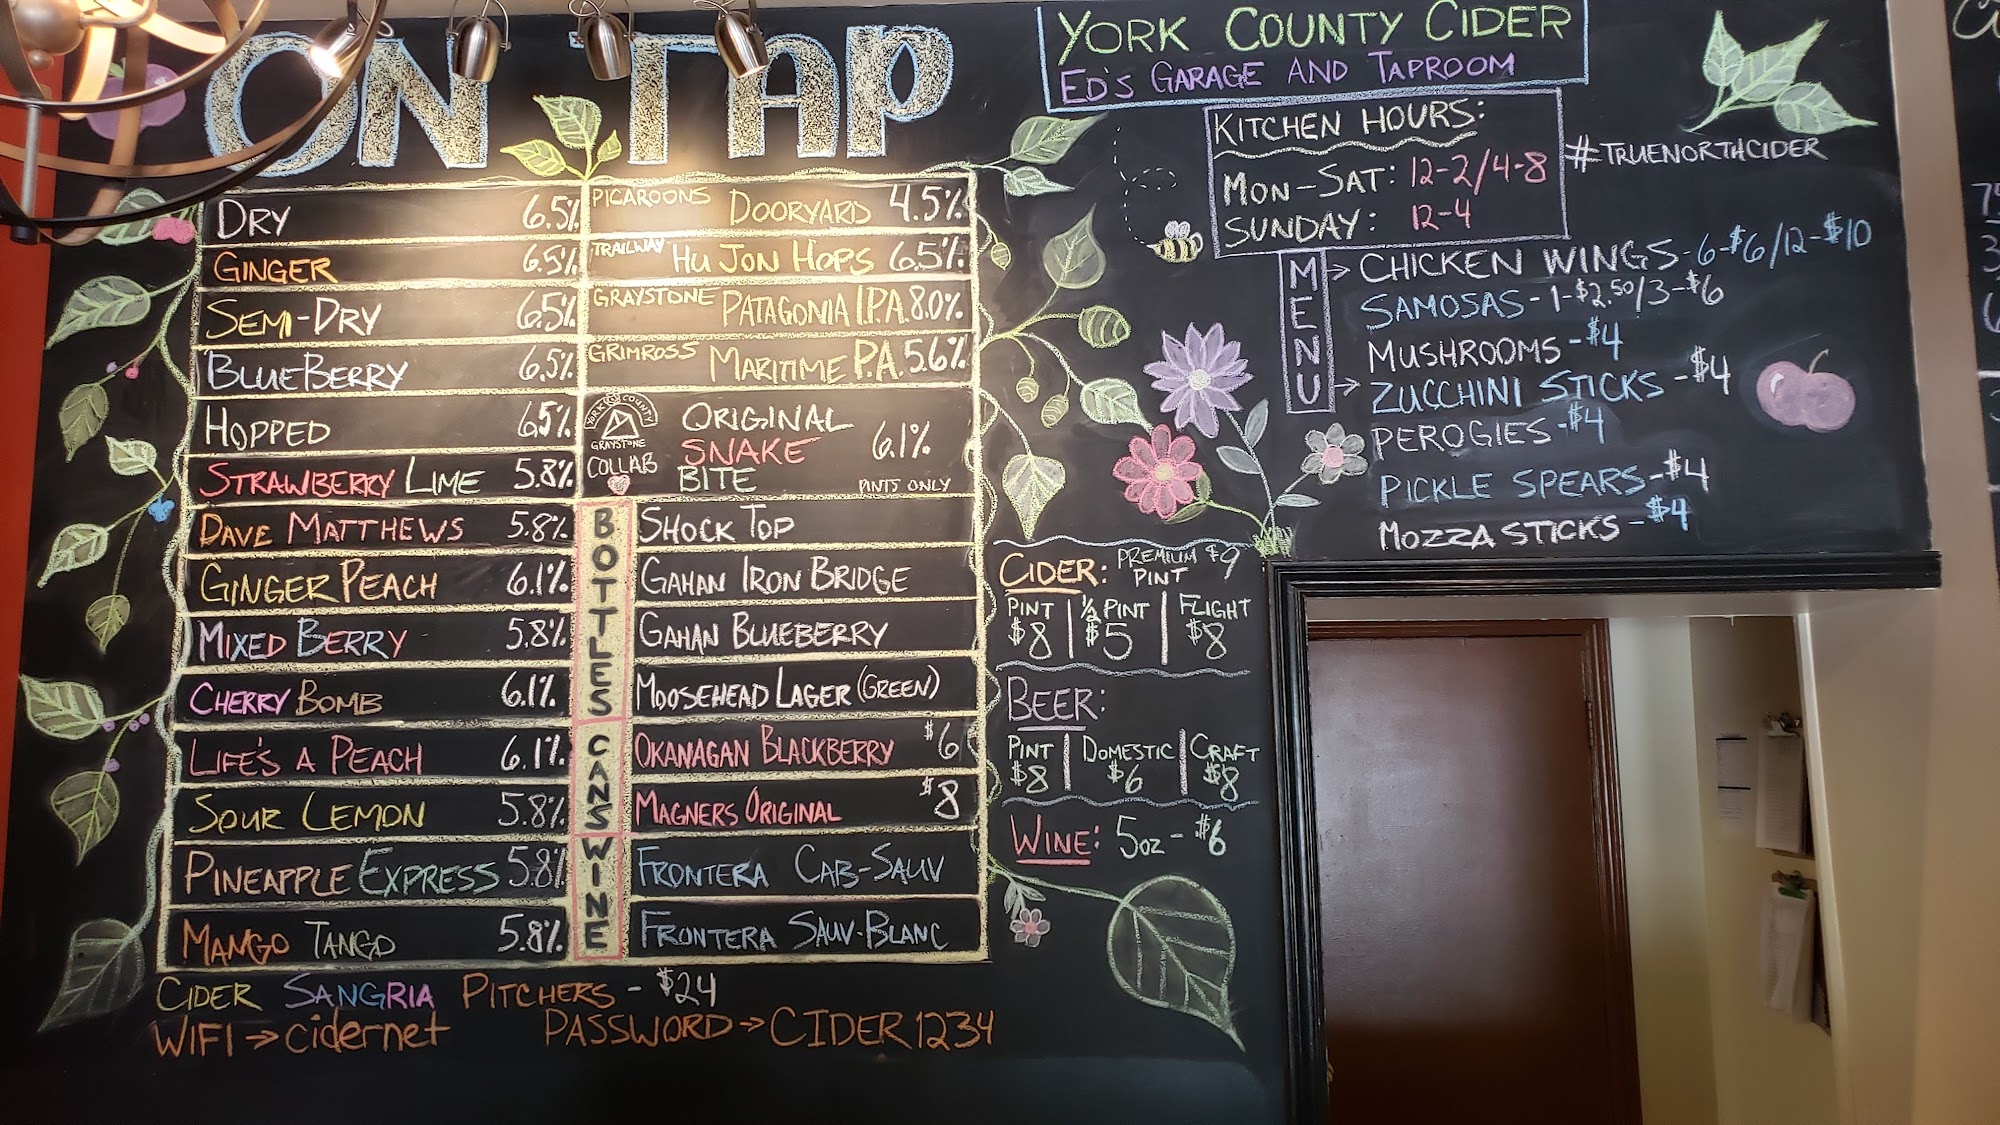 ON TAP
DRY 6.5%
GINGER 6.5%
SEMI-DRY 6.5%
BLUEBERRY 6.5%
HOPPED 6.5%
STRAWBERRY LIME 5.8%
DAVE MATTHEWS 5.8%
GINGER PEACH 6.1%
MIXED BERRY 5.8%
CHERRY BOMB 6.1%
LIFE'S A PEACH 6.1%
SOUR LEMON 5.8%
PINEAPPLE EXPRESS 5.8%
MANGO TANGO 5.8%
PICAROONS DOORYARD 4.5%
TRAILWAY HU JON HOPS 6.5%
GRAYSTONE PATAGONIA I.P.A. 8.0%
GRIMROSS MARITIME P.A. 5.6%
YORK COUNTY
GRAYSTONE
COLLAB
ORIGINAL
SNAKE
BITE
6.1%
PINTS ONLY
BOTTLES
SHOCK TOP
GAHAN IRON BRIDGE
GAHAN BLUEBERRY
MOOSEHEAD LAGER (GREEN)
CANS
OKANAGAN BLACKBERRY $6
MAGNERS ORIGINAL $8
WINE
FRONTERA CAB-SAUV
FRONTERA SAUV-BLANC
CIDER SANGRIA PITCHERS - $24
WIFI → cidernet PASSWORD → CIDER1234
YORK COUNTY CIDER
ED'S GARAGE AND TAPROOM
KITCHEN HOURS:
MON-SAT: 12-2/4-8
SUNDAY: 12-4
#TRUENORTHCIDER
MENU
→ CHICKEN WINGS - 6-$6/12-$10
SAMOSAS - 1-$2.50/3-$6
MUSHROOMS - $4
→ ZUCCHINI STICKS - $4
PEROGIES - $4
PICKLE SPEARS - $4
MOZZA STICKS - $4
CIDER: PREMIUM PINT $9
PINT $8 | 1/2 PINT $5 | FLIGHT $8
BEER:
PINT $8 | DOMESTIC $6 | CRAFT $8
WINE: 5oz - $6